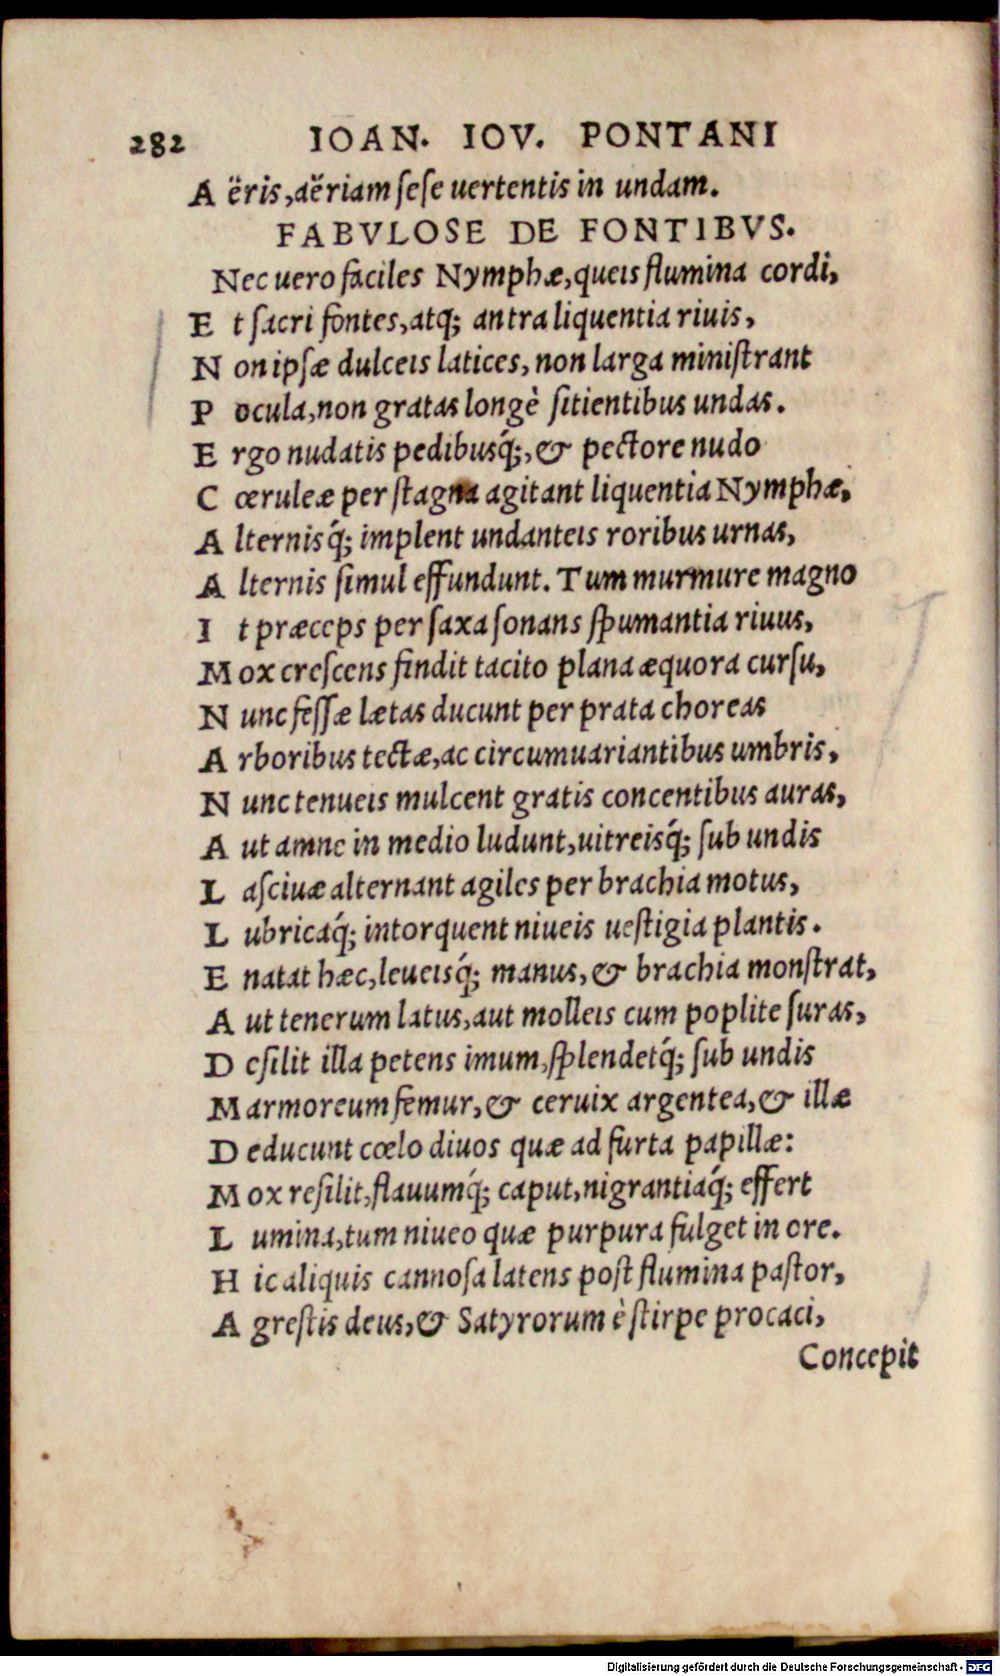 282 IOAN. IOV. PONTANI
A ëris, aëriam sese uertentis in undam.
FABVLOSE DE FONTIBVS.
Nec uero faciles Nymphæ, queis flumina cordi,
E t sacri fontes, atq; antra liquentia riuis,
N on ipsæ dulceis latices, non larga ministrant
P ocula, non gratas longè sitientibus undas.
E rgo nudatis pedibusq́;, & pectore nudo
C œruleæ per stagna agitant liquentia Nymphæ.
A lternisq́; implent undanteis roribus urnas,
A lternis simul effundunt. Tum murmure magno
I t præceps per saxa sonans spumantia riuus,
M ox crescens findit tacito plana æquora cursu,
N unc fessæ lætas ducunt per prata choreas
A rboribus tectæ, ac circumuariantibus umbris,
N unc tenueis mulcent gratis concentibus auras,
A ut amne in medio ludunt, uitreisq́; sub undis
L asciuæ alternant agiles per brachia motus,
L ubricaq́; intorquent niueis uestigia plantis.
E natat hæc, leueisq́; manus, & brachia monstrat,
A ut tenerum latus, aut molleis cum poplite suras,
D esilit illa petens imum, splendetq́; sub undis
M armoreum femur, & ceruix argentea, & illæ
D educunt cœlo diuos quæ ad furta papillæ:
M ox resilit, flauumq́; caput, nigrantiaq́; effert
L umina, tum niueo quæ purpura fulget in ore.
H ic aliquis cannosa latens post flumina pastor,
A grestis deus, & Satyrorum è stirpe procaci,
Concepit
Digitalisierung gefördert durch die Deutsche Forschungsgemeinschaft - DFG